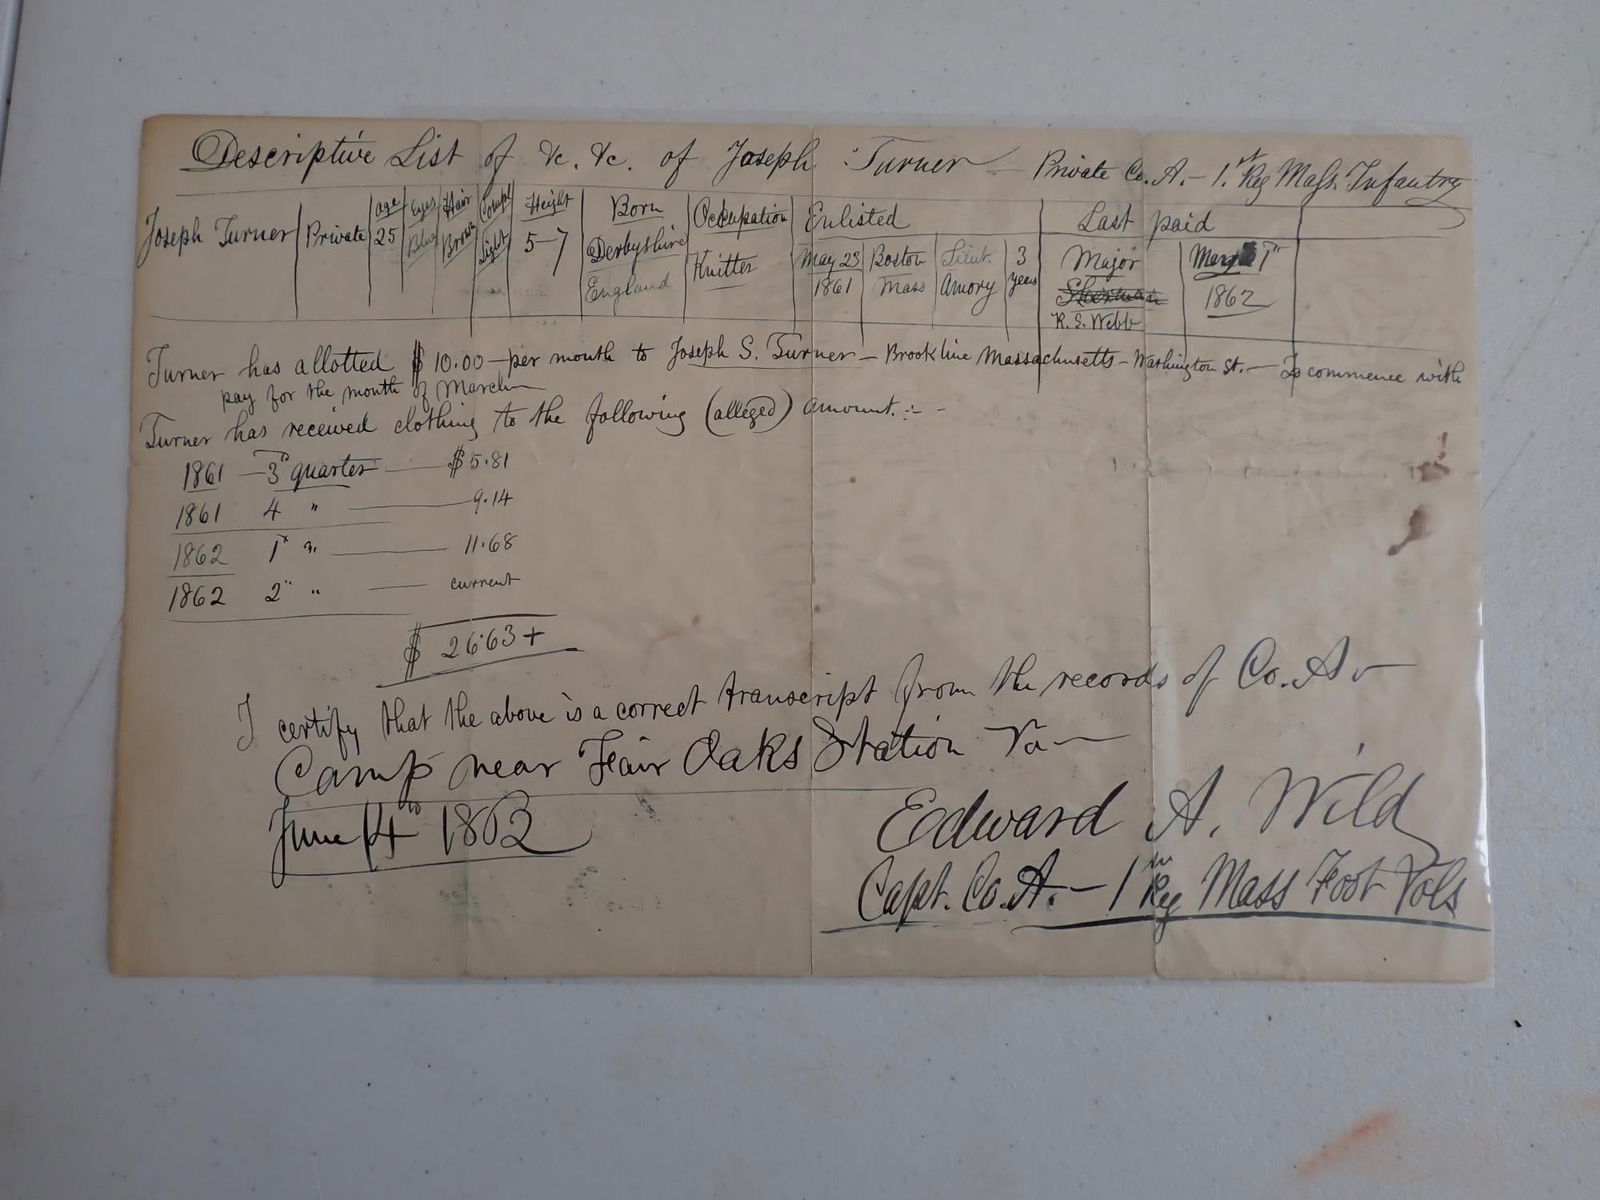 Descriptive List of &c. &c. of Joseph Turner — Private Co. A. — 1.st Reg Mass. Infantry
age Eyes Hair Compl Height Born Occupation Enlisted Last paid
Joseph Turner Private 25 Blue Brown Light 5-7 Derbyshire Knitter May 23 Boston Lieut. 3 Major
England 1861 Mass Amory years 1862
R. S. Webb
Turner has allotted $10.00 — per month to Joseph S. Turner — Brookline Massachusetts — Washington St. — To commence with
pay for the month of March
Turner has received clothing to the following (alleged) amount. :- -
1861 — 3d quarter — $5.81
1861 4 " — 9.14
1862 1st " — 11.68
1862 2" " — current
$ 26.63 +
I certify that the above is a correct transcript from the records of Co. A —
Camp near Fair Oaks Station Va —
June 14th 1862
Edward A. Wild
Capt. Co. A. — 1st Reg Mass Foot Vols